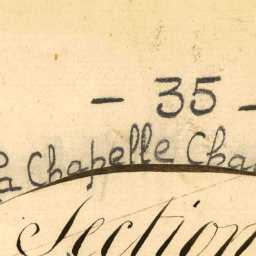 - 35 -
La Chapelle Cha
Section